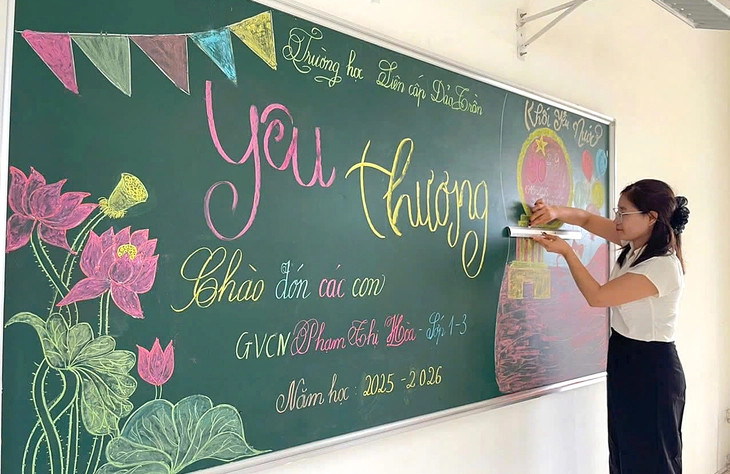 Trường học Tiên cấp Đảo Trần
Khối yêu Nước
yêu thương
Chào đón các con
GVCN Phạm Thị Hòa - Lớp 1-3
Năm học: 2025 - 2026